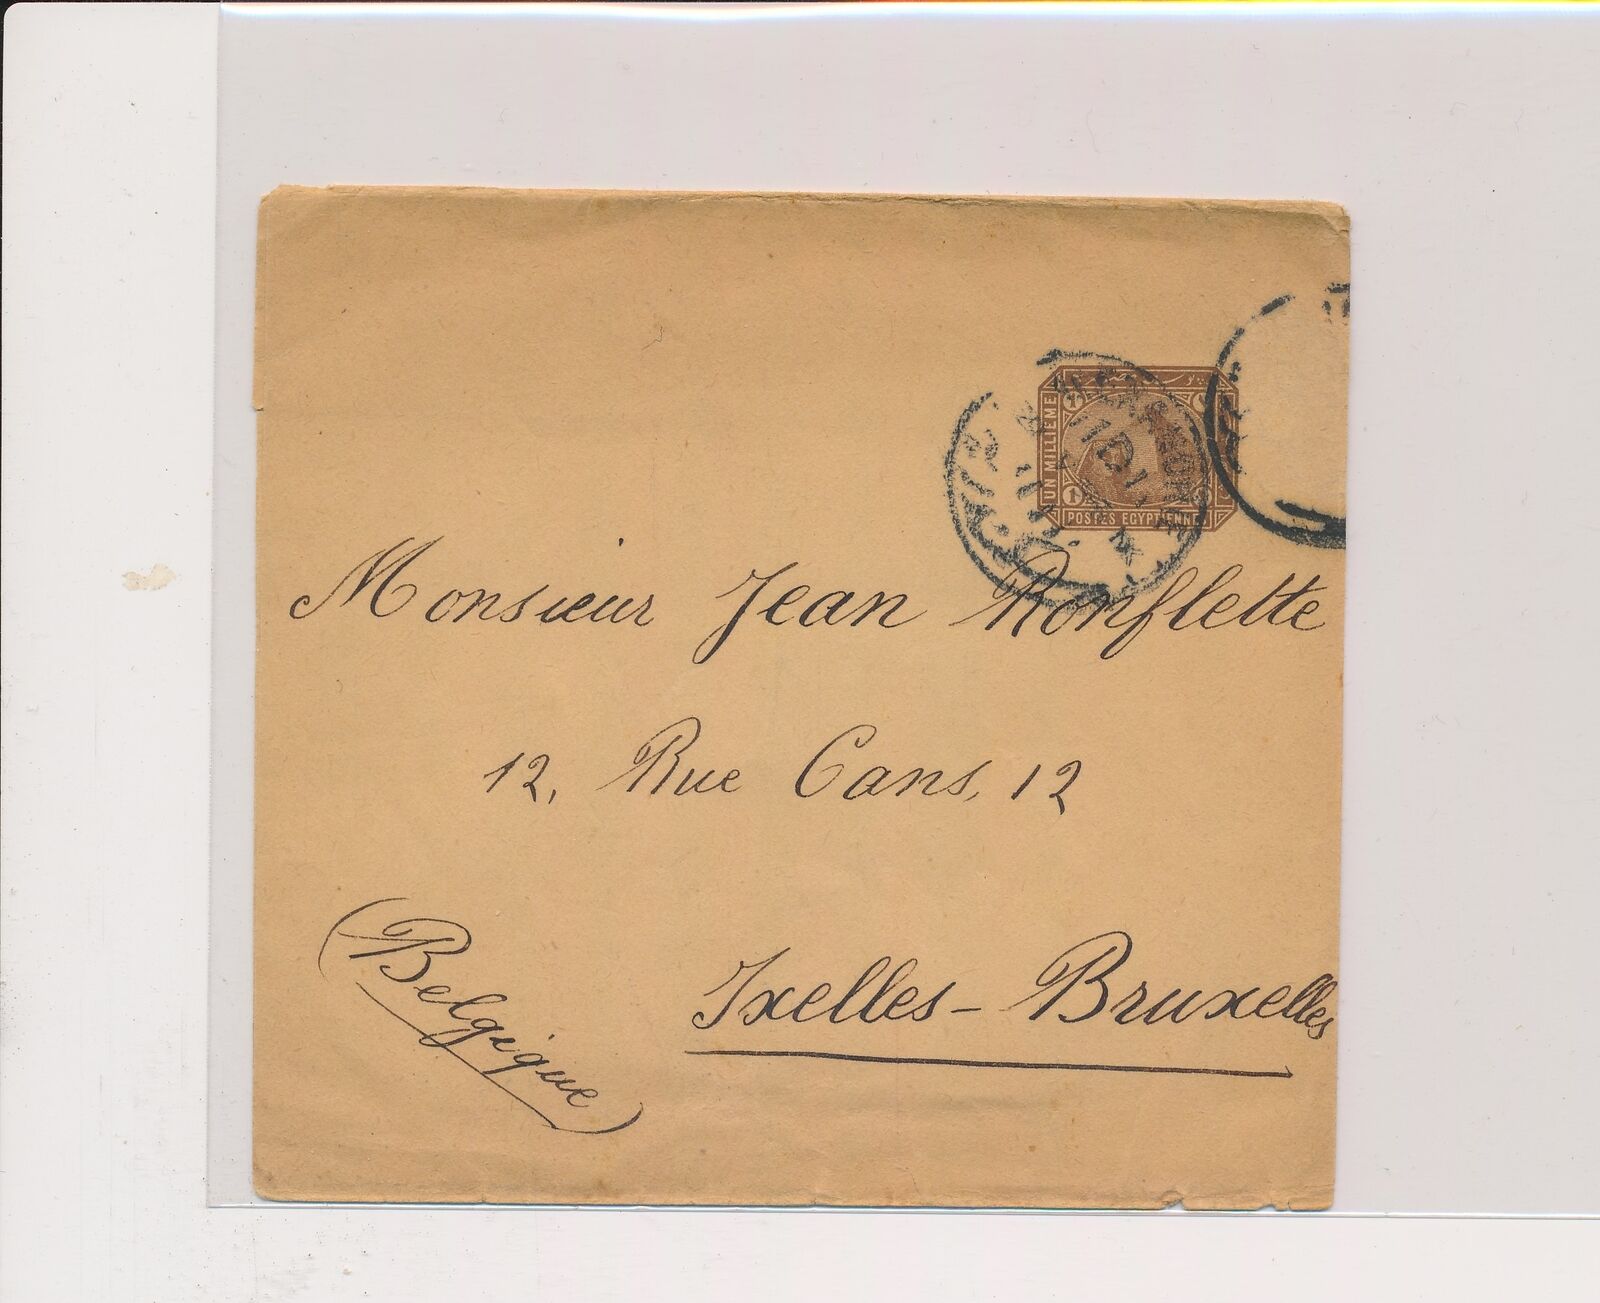 UN MILLIEME
1
1
POSTES EGYPTIENNES
Monsieur Jean Ronflette
12, Rue Cans, 12
(Belgique)
Ixelles - Bruxelles